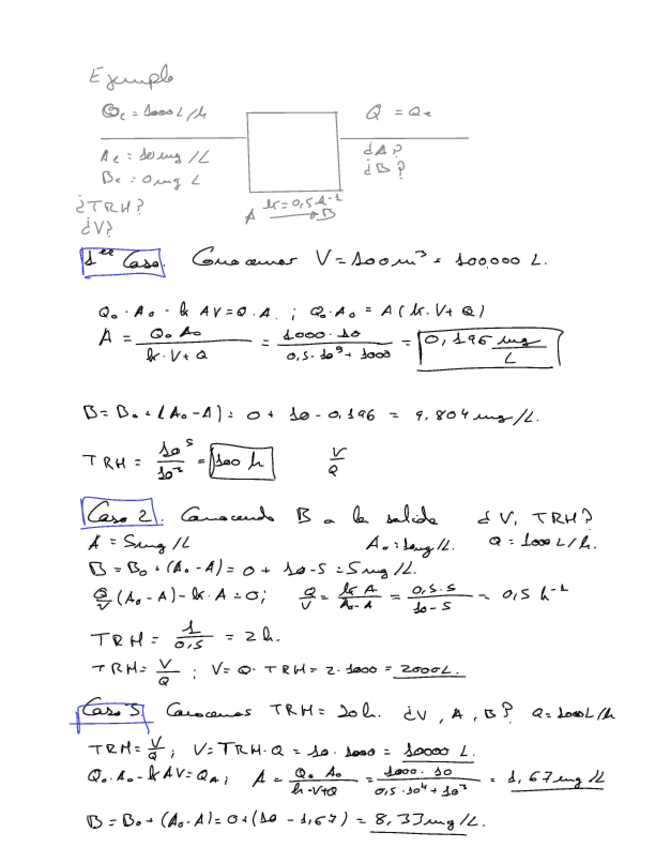 Ejemplo
Qe = 1000 L/h
Q = Qe
Ae = 10 mg/L
Be = 0 mg L
¿A?
¿B?
k = 0,5 h-1
A → B
¿TRH?
¿V?
1er Caso. Conocemos V = 100 m³ = 100,000 L.
Q₀ · A₀ - k A V = Q · A ; Q₀ · A₀ = A (k. V + Q)
A = Q₀ A₀ / k · V + Q = 1000 · 10 / 0,5 · 10⁵ + 1000 = 0,196 mg / L
B = B₀ + (A₀ - A) = 0 + 10 - 0,196 = 9.804 mg/L.
TRH = 10⁵ / 10³ = 100 h V / Q
Caso 2. Conociendo B a la salida ¿V, TRH?
A = 5 mg/L A₀ = 10 mg/L. Q = 1000 L/h.
B = B₀ + (A₀ - A) = 0 + 10 - 5 = 5 mg/L.
Q/V (A₀ - A) - k · A = 0; Q/V = k A / A₀ - A = 0,5 · 5 / 10 - 5 = 0,5 h-1
TRH = 1 / 0,5 = 2 h.
TRH = V / Q ; V = Q · TRH = 2 · 1000 = 2000 L.
Caso 3 Conocemos TRH = 10 h. ¿V, A, B? Q = 1000 L/h
TRH = V/Q ; V = TRH · Q = 10 · 1000 = 10000 L.
Q₀ · A₀ - k A V = QA ; A = Q₀ A₀ / k · V + Q = 1000 · 10 / 0,5 · 10⁴ + 10³ = 1,67 mg/L
B = B₀ + (A₀ - A) = 0 + (10 - 1,67) = 8,33 mg/L.